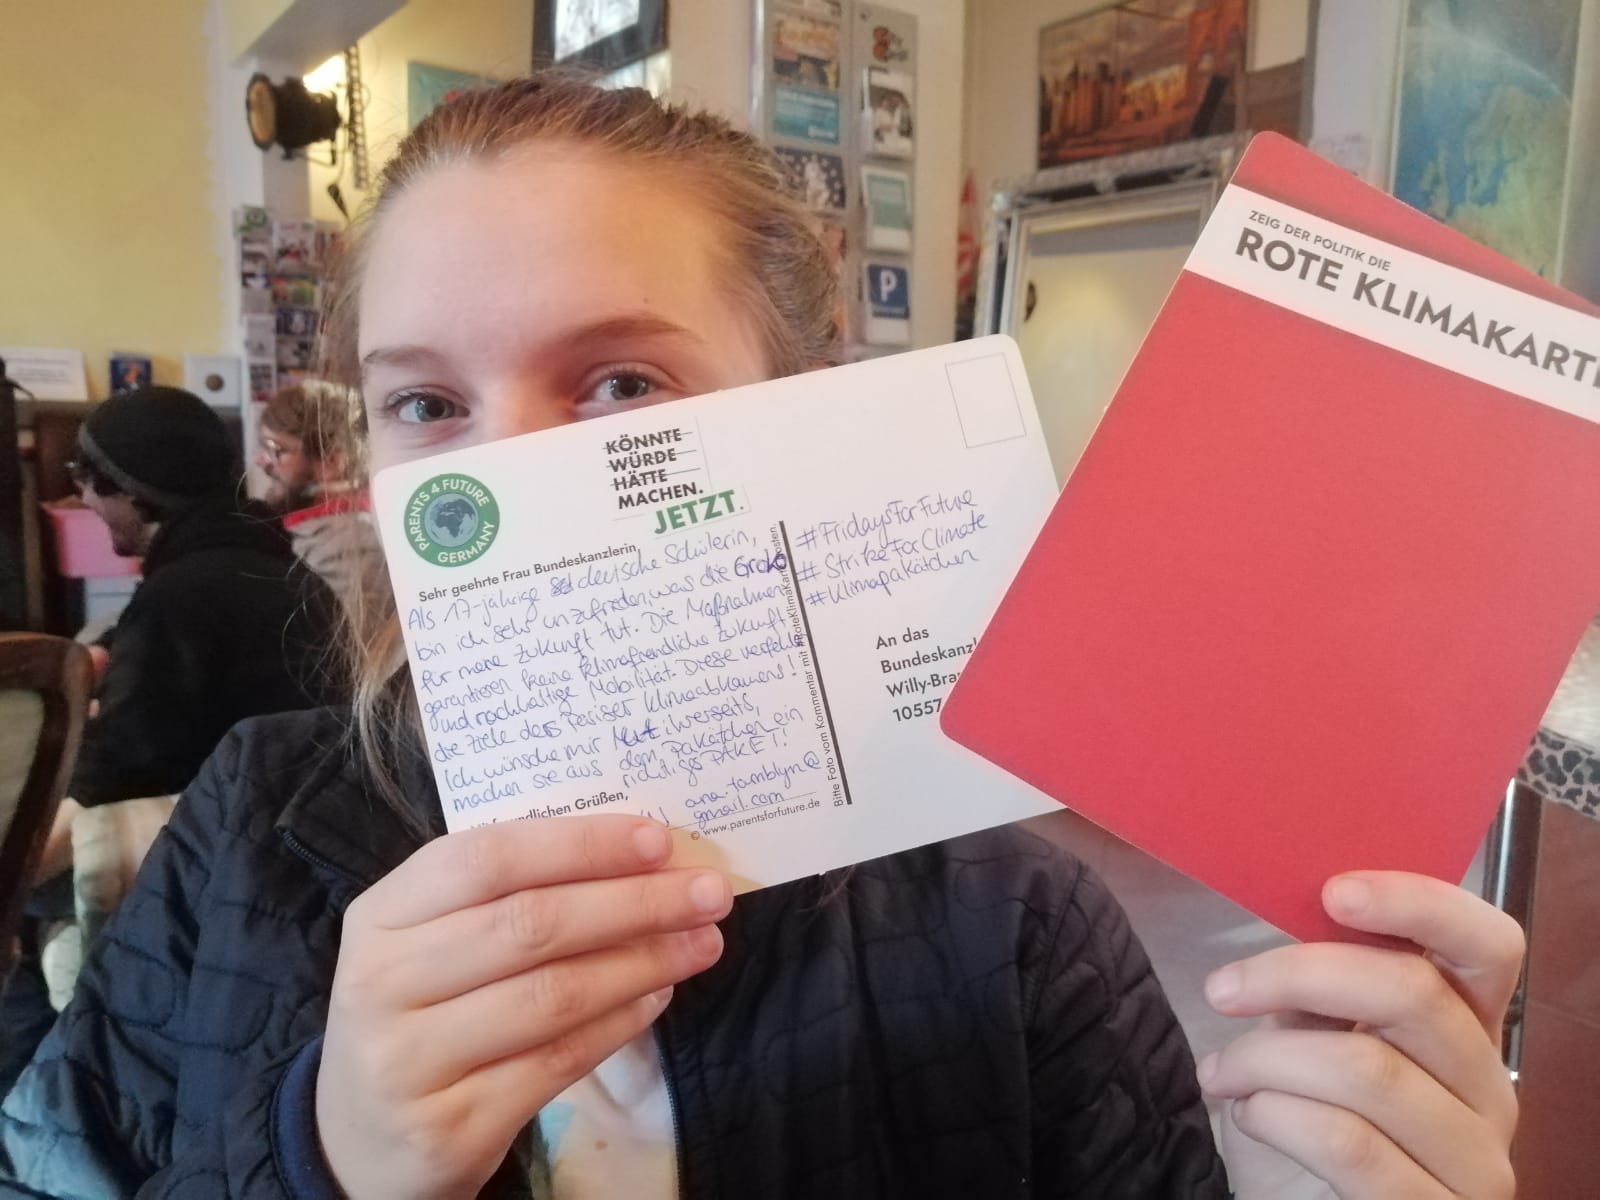 ZEIG DER POLITIK DIE
ROTE KLIMAKARTE
PARENTS 4 FUTURE
GERMANY
KÖNNTE
WÜRDE
HÄTTE
MACHEN.
JETZT.
Sehr geehrte Frau Bundeskanzlerin,
Als 17-jährige deutsche Schülerin,
bin ich sehr unzufrieden, was die GroKo
für meine Zukunft tut. Die Maßnahmen
garantieren keine klimafreundliche Zukunft
und nachhaltige Mobilität. Diese verfehlen
die Ziele des Pariser Klimaabkommens!
Ich wünsche mir Mut ihrerseits,
machen sie aus dem Pakätchen ein
richtiges PAKET!
Mit freundlichen Grüßen,
ana.tamblyn@
gmail.com
© www.parentsforfuture.de
Bitte Foto vom Kommentar mit #RoteKlimakarte posten.
#FridaysForFuture
#StrikeForClimate
#Klimapakätchen
An das
Bundeskanzl
Willy-Bra
10557
P